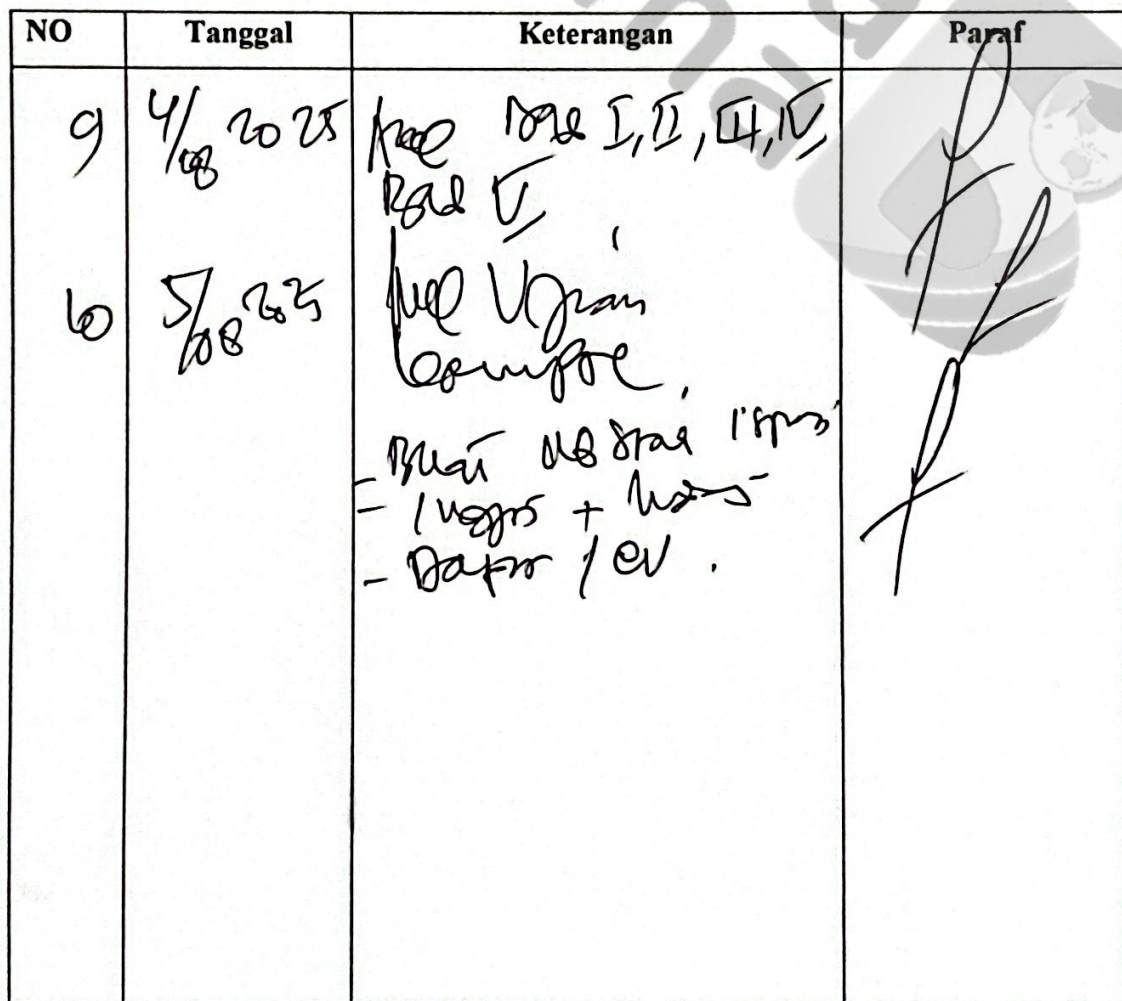 NO Tanggal Keterangan Paraf
9 4/08 2025 Acc Bab I, II, III, IV,
Bab V,
10 5/08 2025 Acc Ujian
Kompre,
- Buat
- Inggris +
- Daftar / CV.